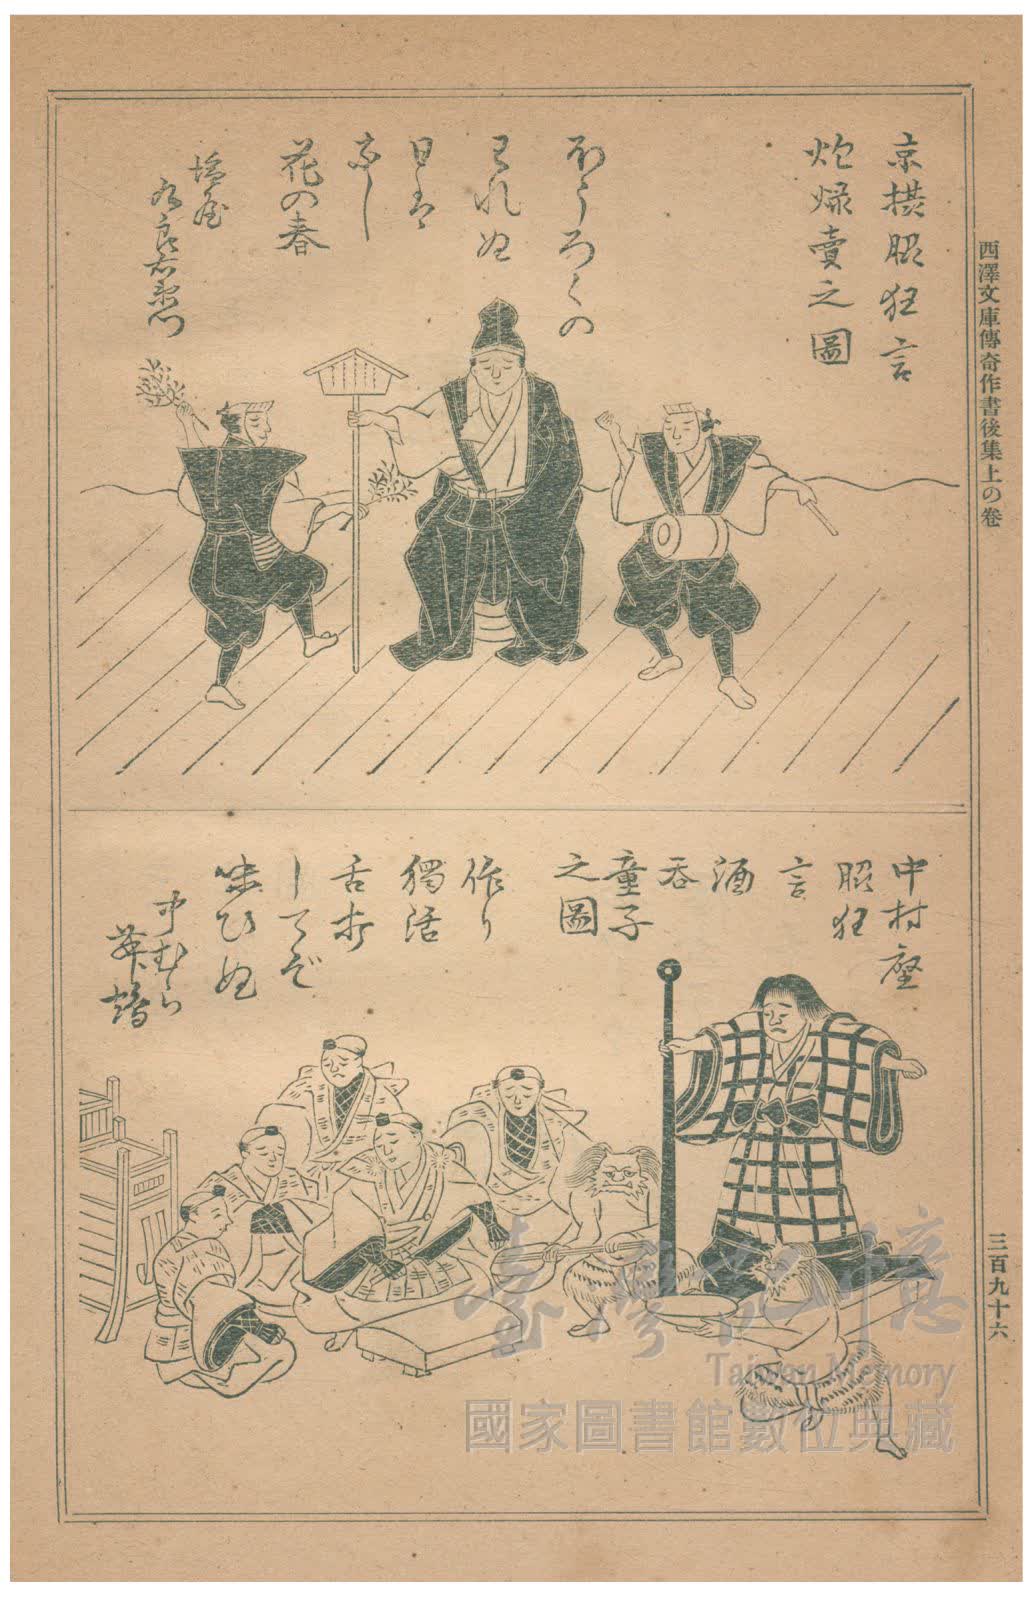 西澤文庫傳奇作書後集上の卷
京撰昭狂言
炮烙賣之圖
ほうろくの
日は
なし
花の春
中村座
昭狂
言
酒
呑
童子
之圖
作り
獨活
舌打
してぞ
味ひぬ
中むら
三百九十六
臺灣記憶
Taiwan Memory
國家圖書館數位典藏